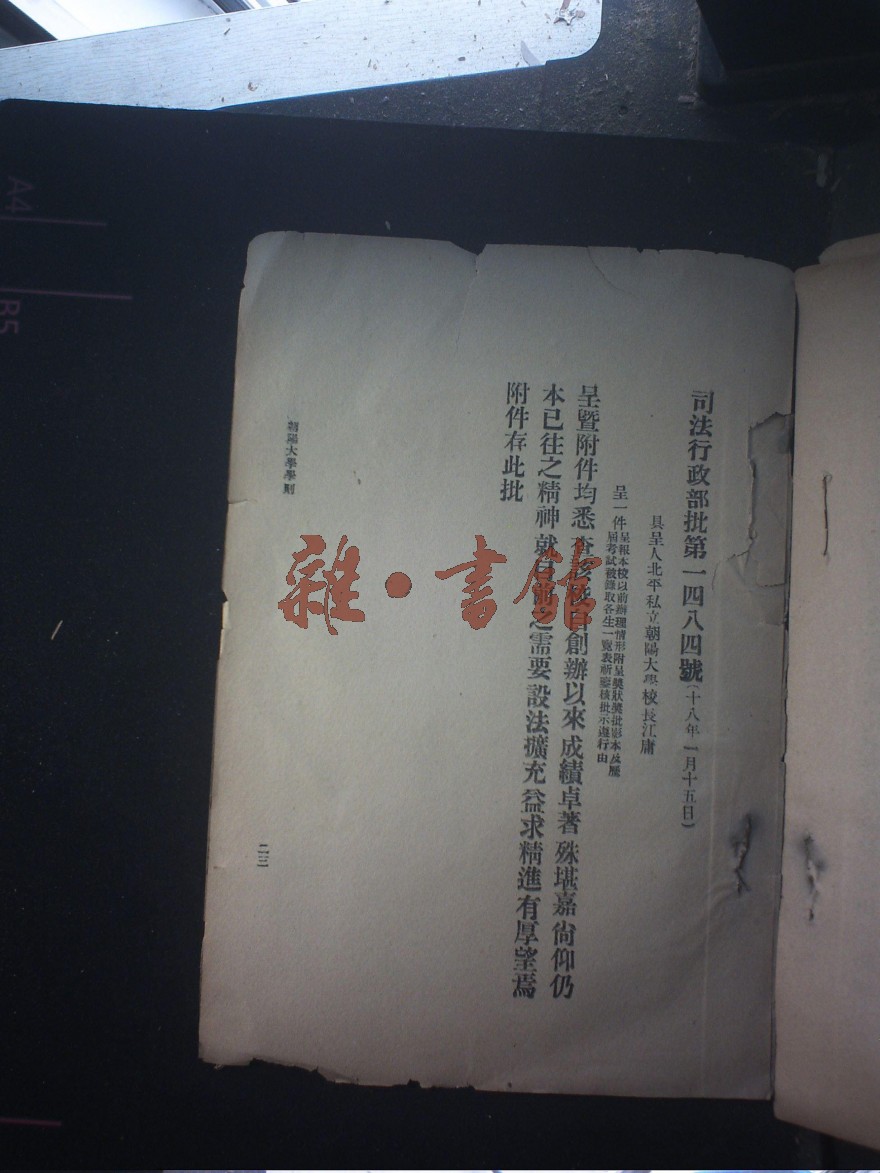 司法行政部批第一四八四號(十八年一月十五日)
具呈人北平私立朝陽大學校長江庸
呈一件呈報本校以前辦理情形附呈獎狀獎批影本及歷
屆考試被錄取各生一覽表祈鑒核批示遵行由
呈暨附件均悉查該校自創辦以來成績卓著殊堪嘉尙仰仍
本已往之精神就目前之需要設法擴充益求精進有厚望焉
附件存此批
朝陽大學學則
二三
雜·書館
A4
B5